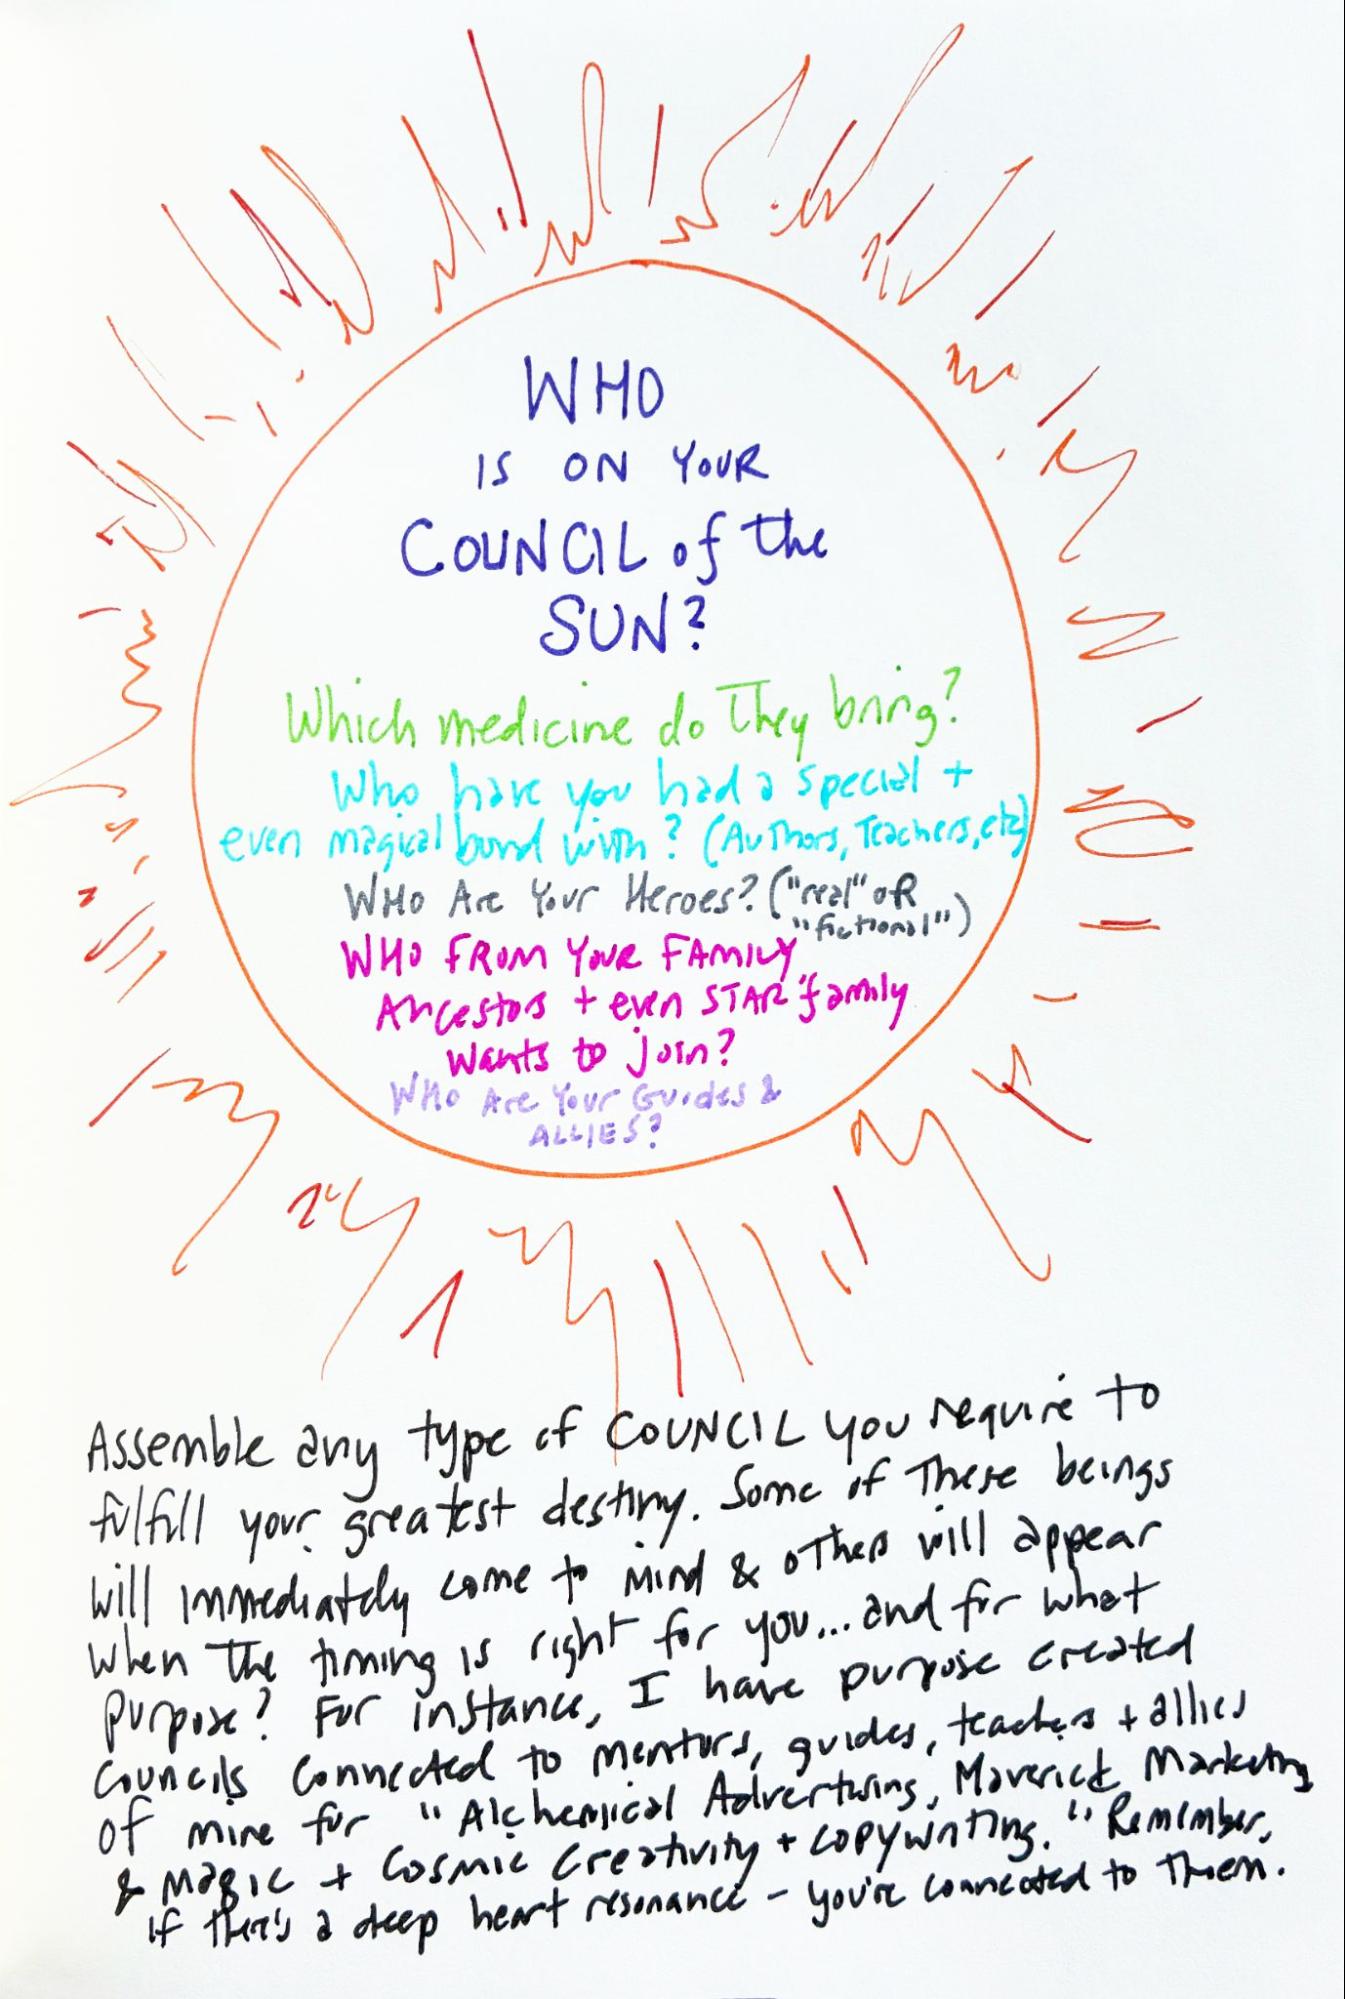 WHO
IS ON YOUR
COUNCIL of the
SUN?
Which medicine do They bring?
Who have you had a special +
even magical bond with? (Authors, Teachers, etc)
WHO Are Your Heroes? ("real" oR
"fictional")
WHO FROM YOUR FAMILY,
Ancestors + even STAR family
wants to join?
WHO Are Your Guides &
ALLIES?
Assemble any type of COUNCIL you require to
fulfill your greatest destiny. Some of These beings
will immediately come to mind & others will appear
when The timing is right for you... and for what
purpose? For instance, I have purpose created
Councils connected to mentors, guides, teachers + allies
of mine for "Alchemical Advertising, Maverick Marketing
& Magic + Cosmic Creativity + copywriting." Remember,
if there's a deep heart resonance - you're connected to Them.